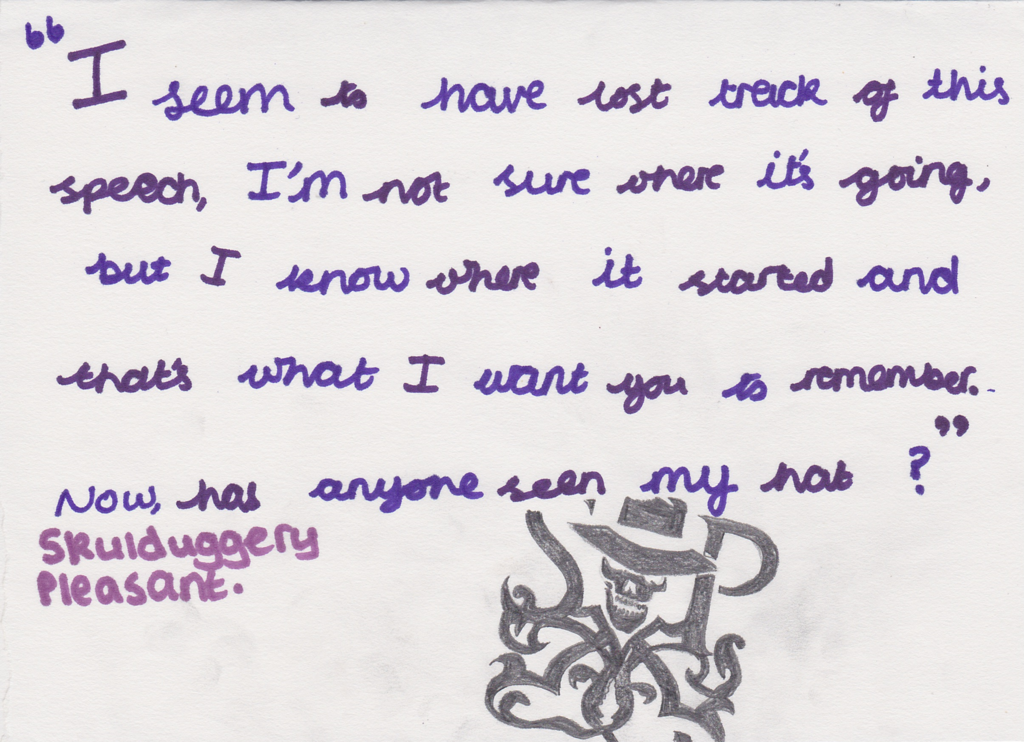 “I seem to have lost track of this
speech, I'm not sure where it's going,
but I know where it started and
that's what I want you to remember.
Now, has anyone seen my hat?”
Skulduggery
Pleasant.
SP